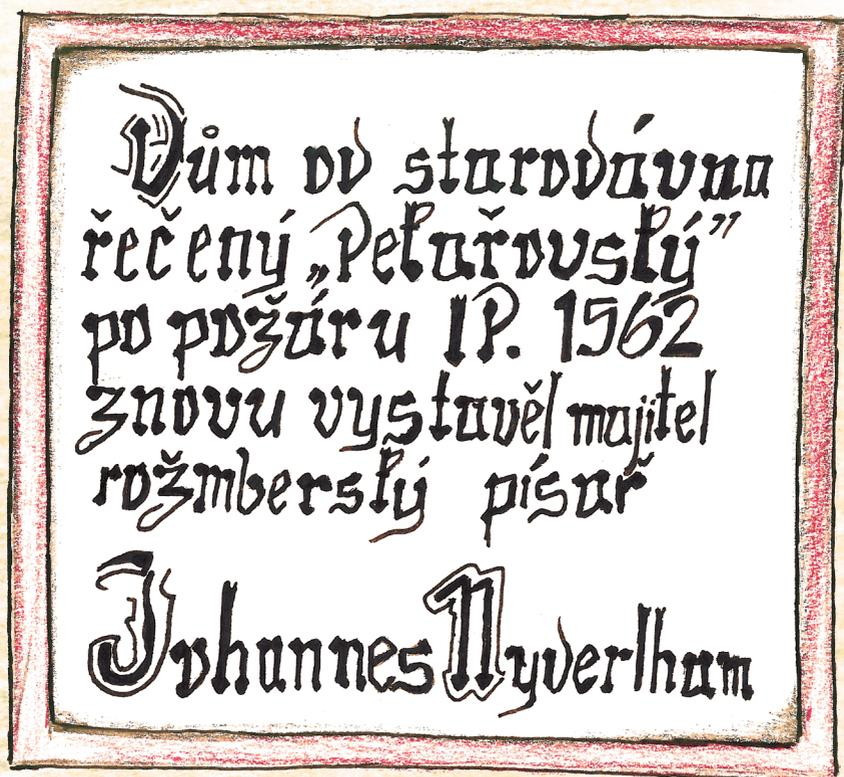 Dům od starodávna
řečený „Pekařovský”
po požáru LP. 1562
znovu vystavěl majitel
rožmberský písař
Johannes Nyderlham